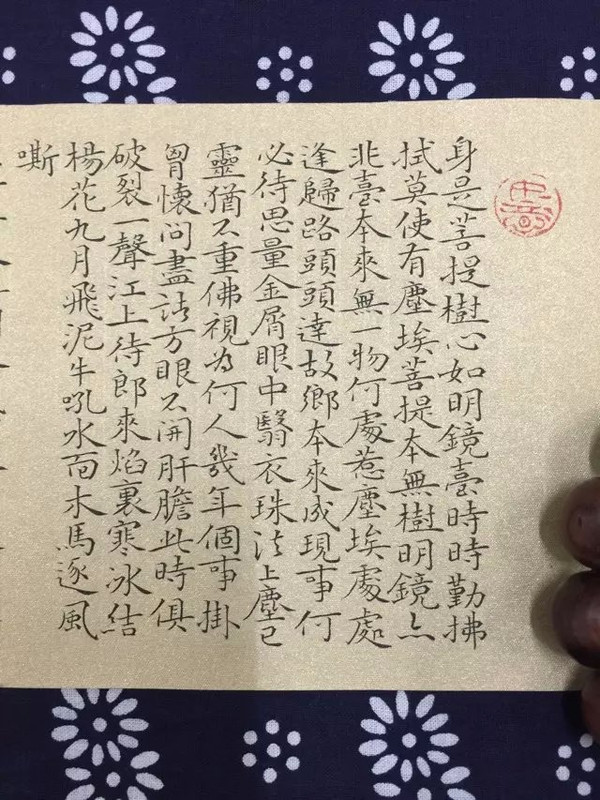 身是菩提樹心如明鏡臺時時勤拂
拭莫使有塵埃菩提本無樹明鏡亦
非臺本來無一物何處惹塵埃處處
逢歸路頭頭達故鄉本來成現事何
必待思量金屑眼中翳衣珠法上塵已
靈猶不重佛視為何人幾年個事掛
胷懷問盡諸方眼不開肝膽此時俱
破裂一聲江上待郎來焰裏寒冰結
楊花九月飛泥牛吼水面木馬逐風
嘶